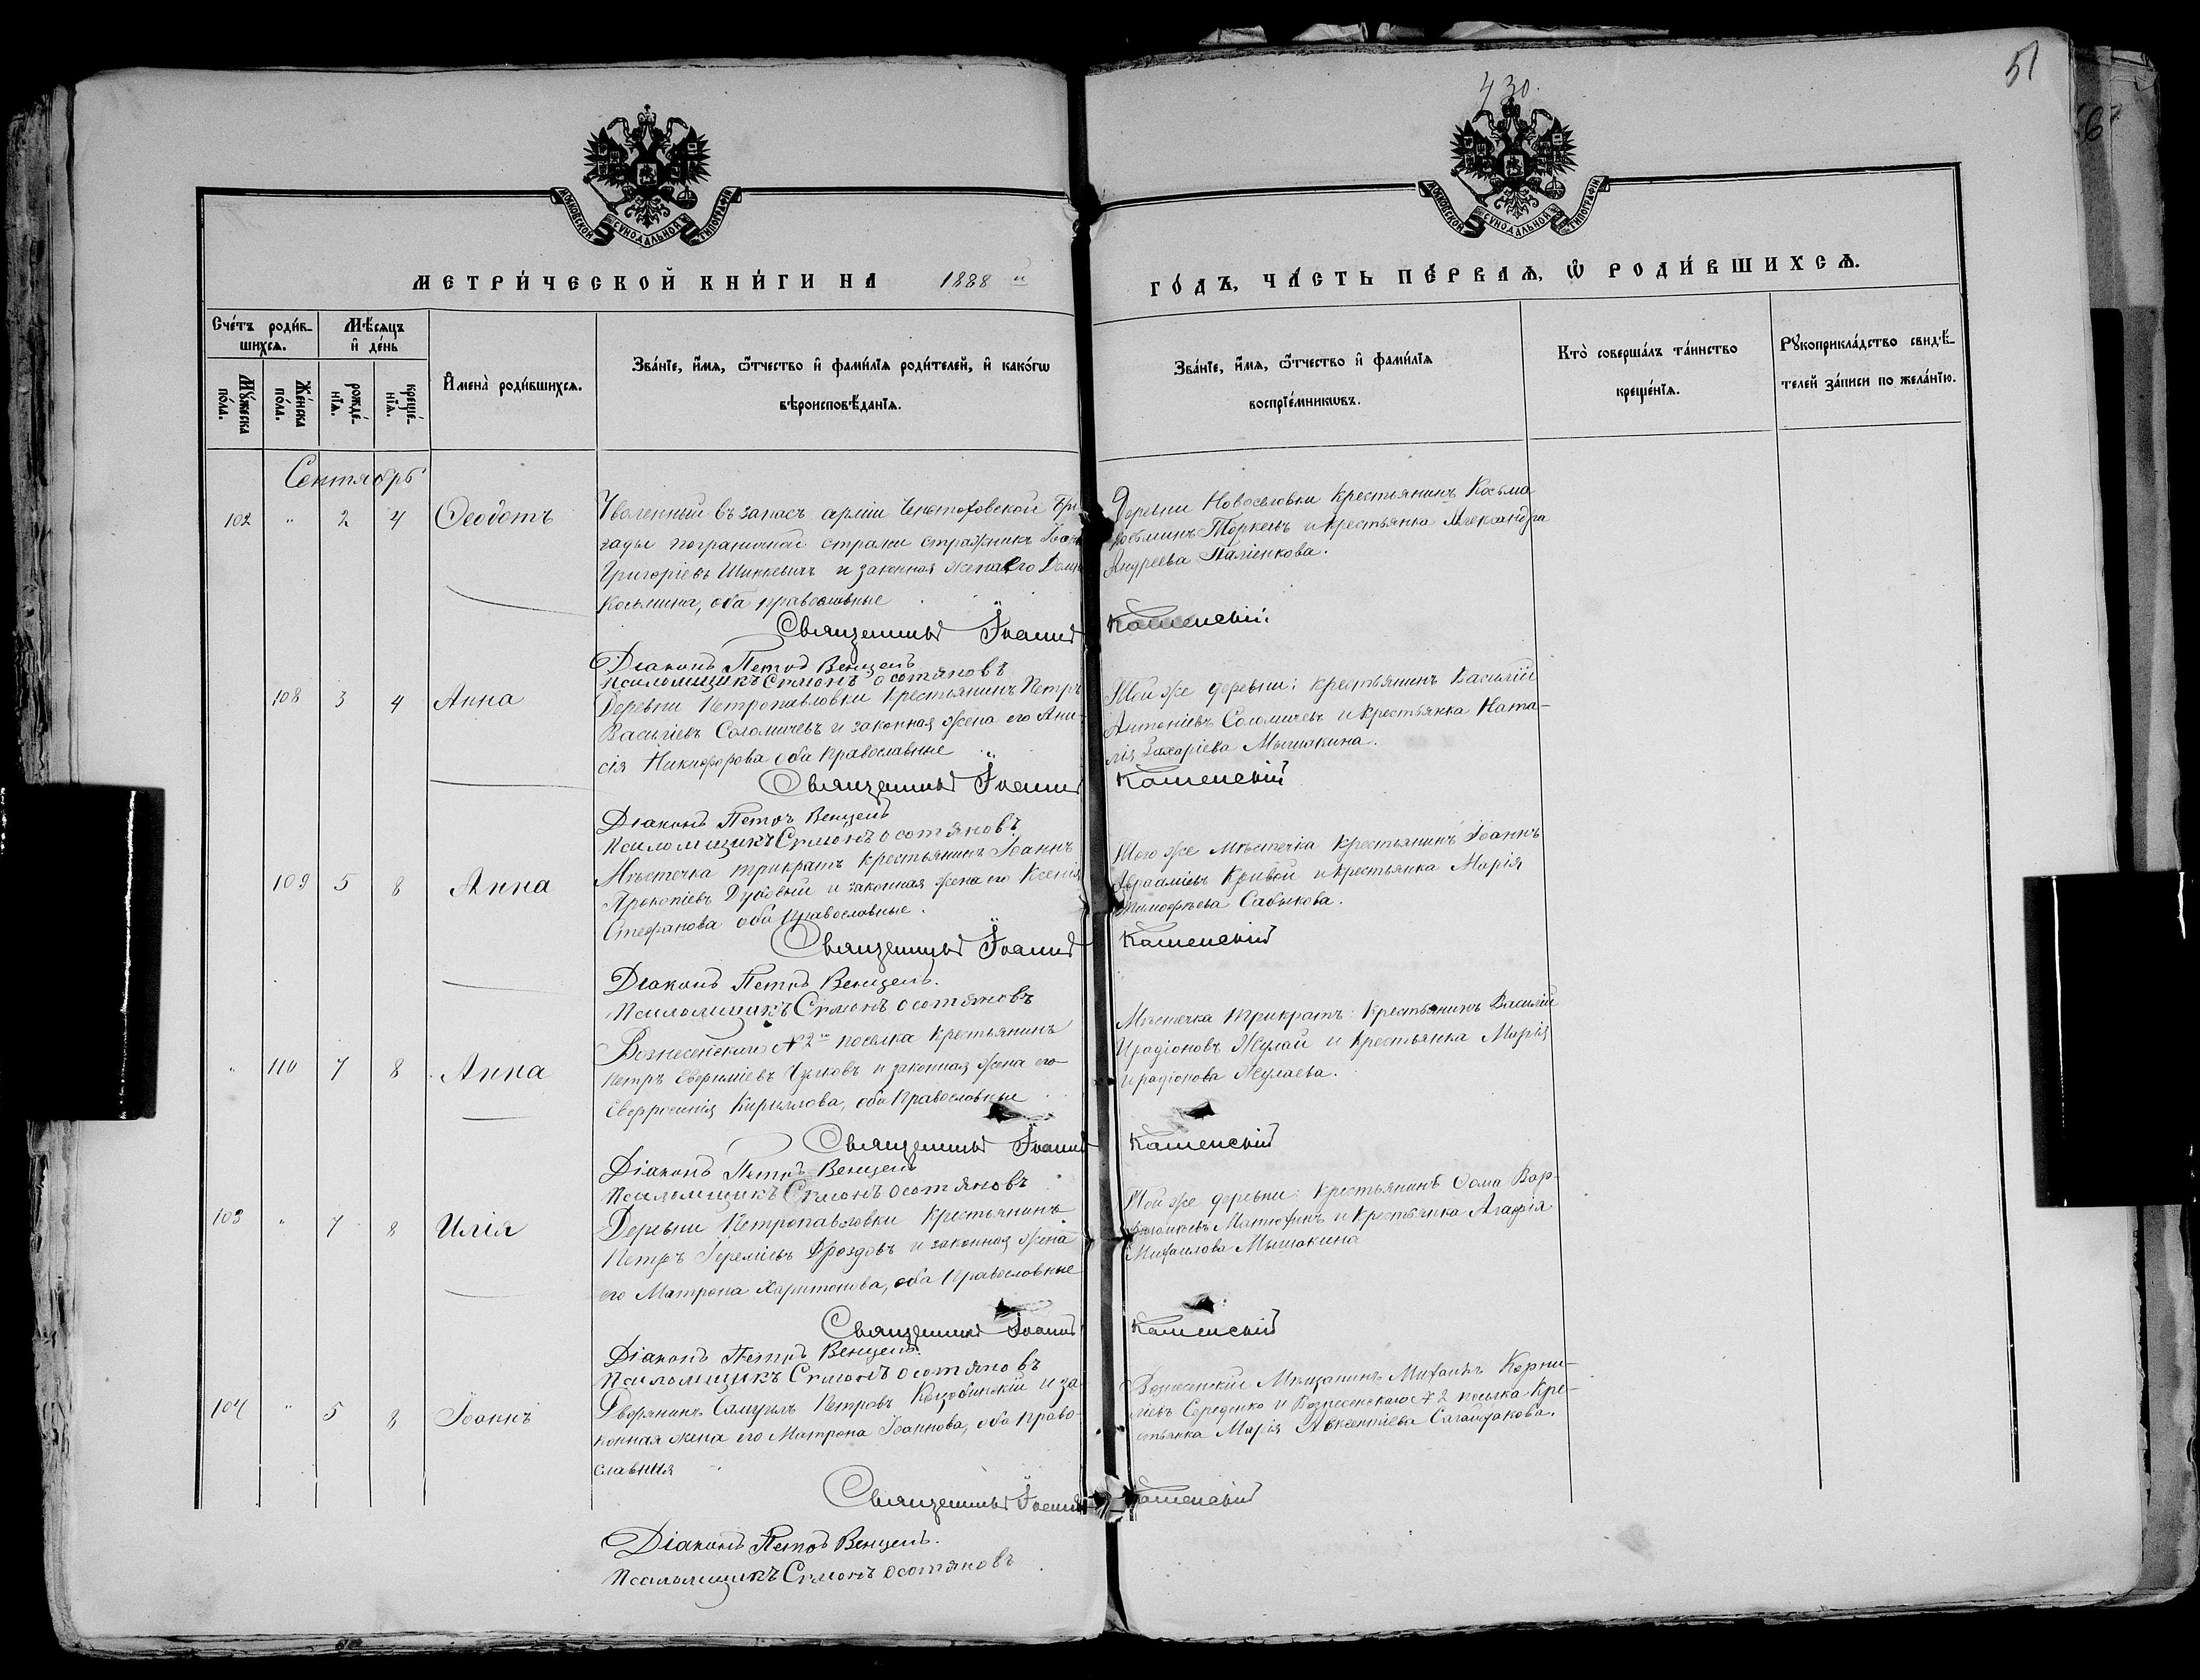 430.
51
МОСКОВСКОЙ СѴНОДАЛЬНОЙ ТИПОГРАФІИ
МОСКОВСКОЙ СѴНОДАЛЬНОЙ ТИПОГРАФІИ
МЕТРИ́ЧЕСКОЙ КНИ́ГИ НА 1888 й
ГО́ДЪ, ЧА́СТЬ ПЕ́РВАѦ, Ѡ҆ РОДИ́ВШИХСѦ.
Сче́тъ роди́в-
шихсѧ.
Мѣ́сѧцъ
и҆ де́нь
Мꙋ́жеска по́ла.
Же́нска по́ла.
рожде́-
нїѧ.
креще́-
нїѧ.
И҆мена̀ роди́вшихсѧ.
Зва́нїе, и҆́мѧ, ѻ҆́тчество и҆ фами́лїѧ роди́телей, и҆ како́гѡ
вѣроисповѣ́данїѧ.
Зва́нїе, и҆́мѧ, ѻ҆́тчество и҆ фами́лїѧ
воспрїе́мникѡвъ.
Кто̀ соверша́лъ та́инство
креще́нїѧ.
Рꙋкоприкла́дство свидѣ́-
телей за́писи по жела́нїю.
Сентябрь
102 " 2 4 Ѳеодотъ
Уволенный въ запасъ арміи Ченстоховской Бри-
гады пограничной стражи стражникъ Іоаннъ
Григоріевъ Шинкевичъ и законная жена его
Косьмина, оба православные
Деревни Новоселовки крестьянинъ Косьма
и крестьянка Александра
Андреева Паліенкова.
Священникъ Іоаннъ Каменскій
Діаконъ Петръ Венцель
Псаломщикъ Симонъ Осотяновъ
108 3 4 Анна
Деревни Петропавловки крестьянинъ Петръ
Василіевъ Соломичевъ и законная жена его Ани-
сія Никифорова оба православные
Той же деревни: крестьянинъ Василій
Антоніевъ Соломичевъ и крестьянка Ната-
лія Захаріева Мышакина.
Священникъ Іоаннъ Каменскій
Діаконъ Петръ Венцель
Псаломщикъ Симонъ Осотяновъ
109 5 8 Анна
Мѣстечка Трикратъ крестьянинъ Іоаннъ
Прокопіевъ Дубовый и законная жена его Ксенія
Стефанова оба православные.
Того же мѣстечка крестьянинъ Іоаннъ
Авраамiевъ Кривой и крестьянка Марія
Тимофѣева Сабыкова.
Священникъ Іоаннъ Каменскій
Діаконъ Петръ Венцель.
Псаломщикъ Симонъ Осотяновъ
" 110 7 8 Анна
Вознесенскаго №2го поселка крестьянинъ
Петръ Евфиміевъ Чулковъ и законная жена его
Евфросинія Кириллова, оба православные
Мѣстечка Трикратъ: крестьянинъ Василій
Иродіоновъ Жулай и крестьянка Марія
Иродіонова Жулаева.
Священникъ Іоаннъ Каменскій
Діаконъ Петръ Венцель
Псаломщикъ Симонъ Осотяновъ
103 " 7 8 Илія
Деревни Петропавловки крестьянинъ
Петръ Іереміевъ Дроздовъ и законная жена
его Матрона Харитонова, оба православные
Той же деревни: крестьянинъ Ѳома Вар-
ѳоломѣевъ Матюхинъ и крестьянка Агафія
Михаилова Мышакина
Священникъ Іоаннъ Каменскій
Діаконъ Петръ Венцель.
Псаломщикъ Симонъ Осотяновъ
104 " 5 8 Іоаннъ
Дворянинъ Самуилъ Петровъ Коцюбинскій и за-
конная жена его Матрона Іоаннова, оба право-
славныя
Вознесенскій Мѣщанинъ Михаилъ Корни-
ліевъ Середенко и Вознесенскаго №2 поселка кре-
стьянка Марія Авксентіева Сагайдакова.
Священникъ Іоаннъ Каменскій
Діаконъ Петръ Венцель.
Псаломщикъ Симонъ Осотяновъ